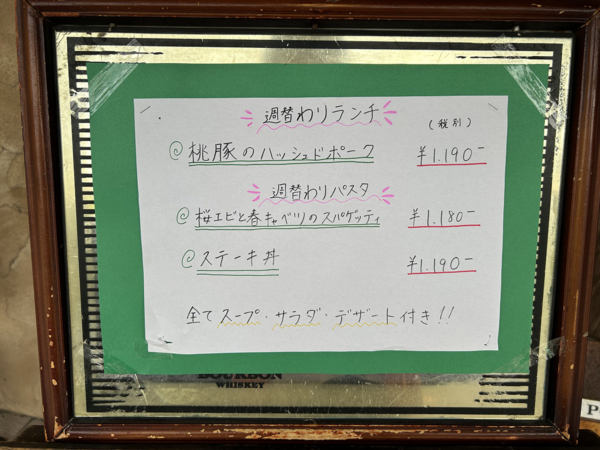 週替わりランチ
(税別)
@桃豚のハッシュドポーク ¥1.190-
週替わりパスタ
@桜エビと春キャベツのスパゲッティ ¥1.180-
@ステーキ丼 ¥1.190-
全てスープ・サラダ・デザート付き!!
BOURBON
WHISKEY
P